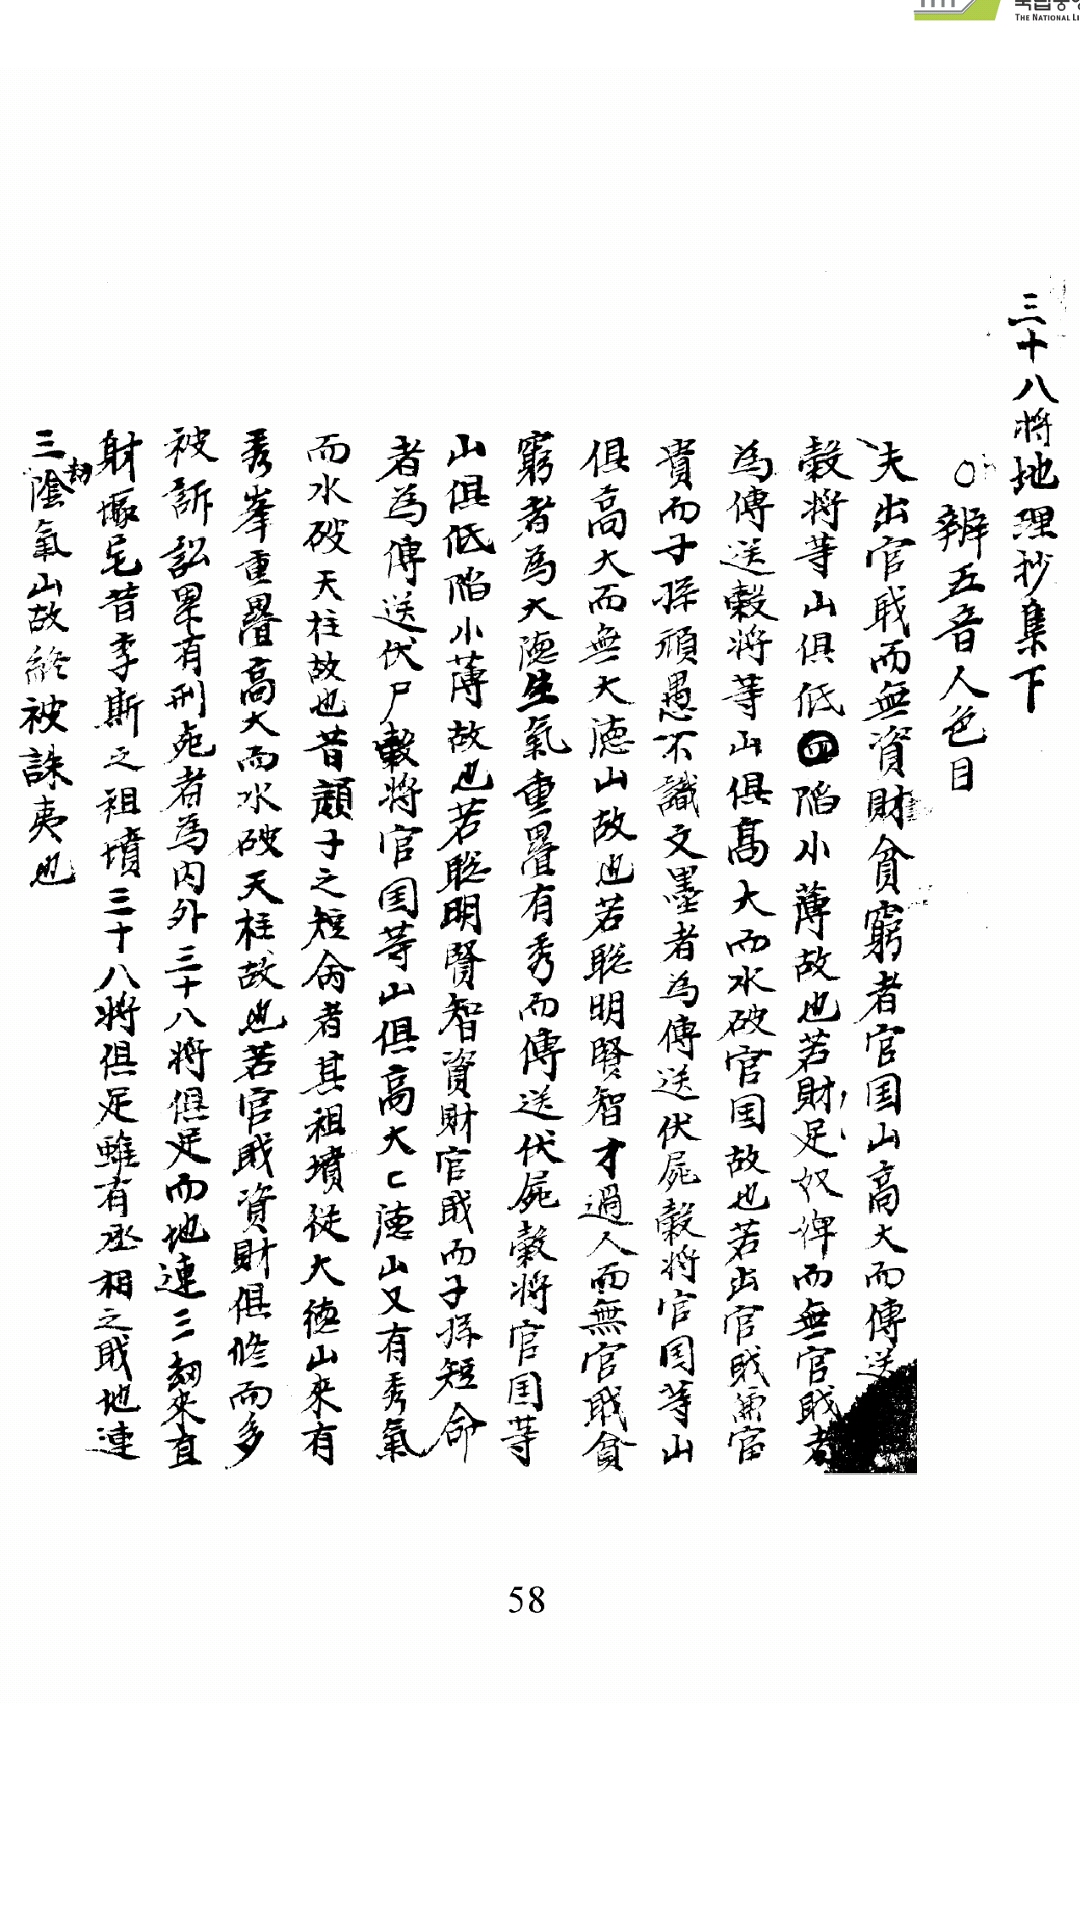 三十八將地理抄集下
○辨五音人色目
夫出官戝而無資財貧窮者官国山高大而傳送
穀將等山俱低四陷小薄故也若財足奴婢而無官戝者
為傳送穀將等山俱高大而水破官国故也若出官戝
貴而子孫頑愚不識文墨者為傳送伏屍穀將官国等山
俱高大而無大德山故也若聡明賢智才過人而無官戝貧
窮者為大德生氣重疊有秀而傳送伏屍穀將官国等
山俱低陷小薄故也若聡明賢智資財官戝而子孫短命
者為傳送伏尸穀將官国等山俱高大亡德山又有秀氣
而水破天柱故也昔顔子之短命者其祖墳從大德山來有
秀峯重疊高大而水破天柱故也若官戝資財俱修而多
被訴訟累有刑死者為内外三十八將俱足而地連三刼來直
射塚宅昔李斯之祖墳三十八將俱足雖有丞相之戝地連
三刼陰氣山故終被誅夷也
58
THE NATIONAL LI